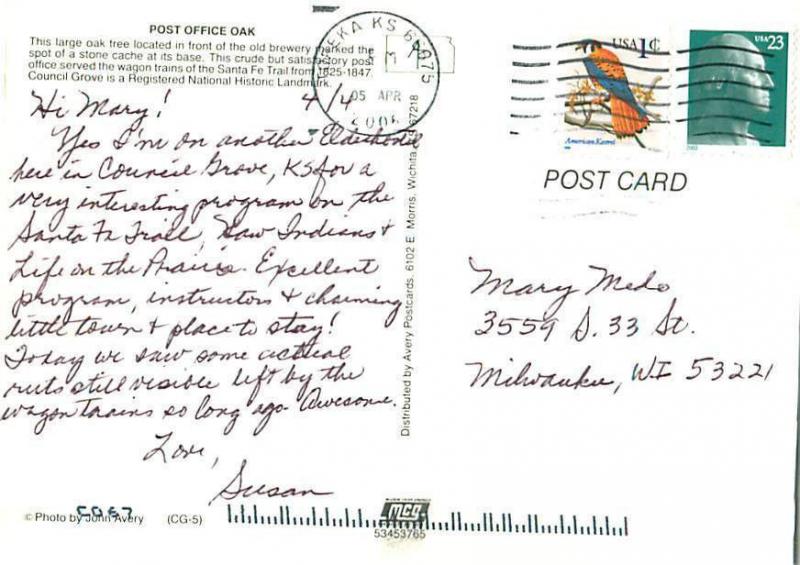 POST OFFICE OAK
This large oak tree located in front of the old brewery marked the
spot of a stone cache at its base. This crude but satisfactory post
office served the wagon trains of the Santa Fe Trail from 1825-1847.
Council Grove is a Registered National Historic Landmark.
Hi Mary! 4/4
Yes I'm on another Elderhostel
here in Council Grove, KS for a
very interesting program on the
Santa Fe Trail, Kaw Indians &
Life on the Prairie. Excellent
program, instructors & charming
little town & place to stay!
Today we saw some actual
ruts still visible left by the
wagon trains so long ago. Awesome.
Love,
Susan
© Photo by John Avery (CG-5)
CG67
Distributed by Avery Postcards, 6102 E. Morris, Wichita, KS 67218
05 APR
USA 1¢
American Kestrel
USA 23
2002
POST CARD
Mary Medo
3559 S. 33 St.
Milwaukee, WI 53221
mcg
53453765